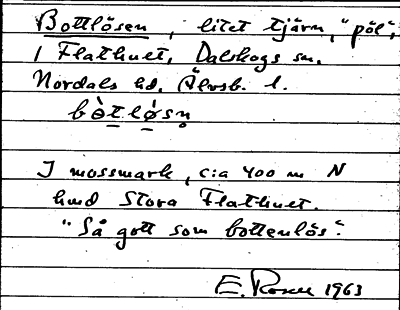 Bottlösen, litet tjärn, "pöl",
i Flathuet, Dalskogs sn.
Nordals hd. Älvsb. l.
bòtlǿsn̥
I mossmark, c:a 400 m N
Stora Flathuet.
"Så gott som bottenlös".
E. Rosell 1963